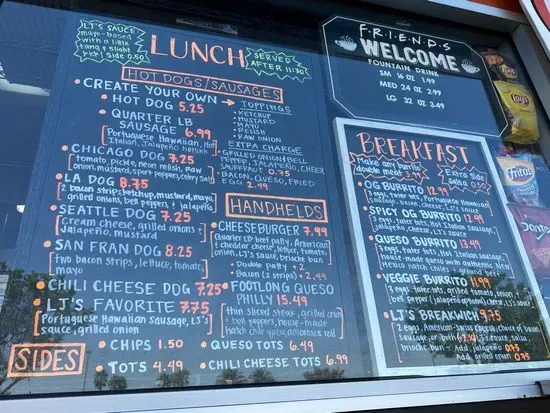 LJ'S SAUCE
mayo-based
with a little
tang & slight
kick! side 0.50
LUNCH
SERVED
AFTER 11:30
HOT DOGS/SAUSAGES
CREATE YOUR OWN → TOPPINGS
HOT DOG 5.25
QUARTER LB
SAUSAGE 6.99
Portuguese Hawaiian, Hot
Italian, Jalapeño
KETCHUP
MUSTARD
MAYO
RELISH
RAW ONION
EXTRA CHARGE
GRILLED ONION & BELL
PEPPER, JALAPEÑO, CHEESE
SAURKRAUT 0.75
BACON, QUESO, FRIED
EGG 2.49
CHICAGO DOG 7.25
tomato, pickle, neon relish, raw
onion, mustard, sport pepper, celery salt
LA DOG 8.75
2 bacon strips, ketchup, mustard, mayo,
grilled onions, bell peppers, & jalapeño
SEATTLE DOG 7.25
Cream cheese, grilled onions,
jalapeño, mustard
SAN FRAN DOG 8.25
two bacon strips, lettuce, tomato,
mayo
CHILI CHEESE DOG 7.25
LJ'S FAVORITE 7.75
Portuguese Hawaiian Sausage, LJ's
sauce, grilled onion
SIDES
CHIPS 1.50
TOTS 4.49
QUESO TOTS 6.49
CHILI CHEESE TOTS 6.99
HANDHELDS
CHEESEBURGER 7.99
Quarter LB beef patty, American
& cheddar cheese, lettuce, tomato,
onion, LJ's sauce, brioche bun
Double patty + 2
Bacon (2 strips) + 2.49
FOOTLONG QUESO
PHILLY 15.49
thin sliced steak, grilled onion
& bell peppers, house-made
hatch chile queso, amorosos roll
F.R.I.E.N.D.S
WELCOME
FOUNTAIN DRINK
SM 16 OZ 1.99
MED 24 OZ 2.99
LG 32 OZ 3.49
BREAKFAST
Make any burrito
double meat 3.49
Extra side
salsa 0.50
OG BURRITO 12.99
3 eggs, tater tots, Portuguese Hawaiian
sausage, bacon, cheese, LJ's sauce
SPICY OG BURRITO 12.99
3 eggs, tater tots, Hot Italian Sausage,
jalapeño, cheese, LJ's sauce
QUESO BURRITO 13.49
3 eggs, tater tots, Hot Italian Sausage,
house-made queso with authentic New
Mexico hatch chiles + ground beef
VEGGIE BURRITO 11.99
3 eggs, tater tots, grilled onion, tomato,
bell pepper (jalapeño optional) cheese, LJ's sauce
LJ'S BREAKWICH 9.75
2 eggs, American-Swiss cheese, choice of bacon,
sausage, or both (+2.49) LJ's sauce, salsa,
brioche bun - Add jalapeño 0.75
Add grilled onion 0.75
Lay's
Fritos
Doritos